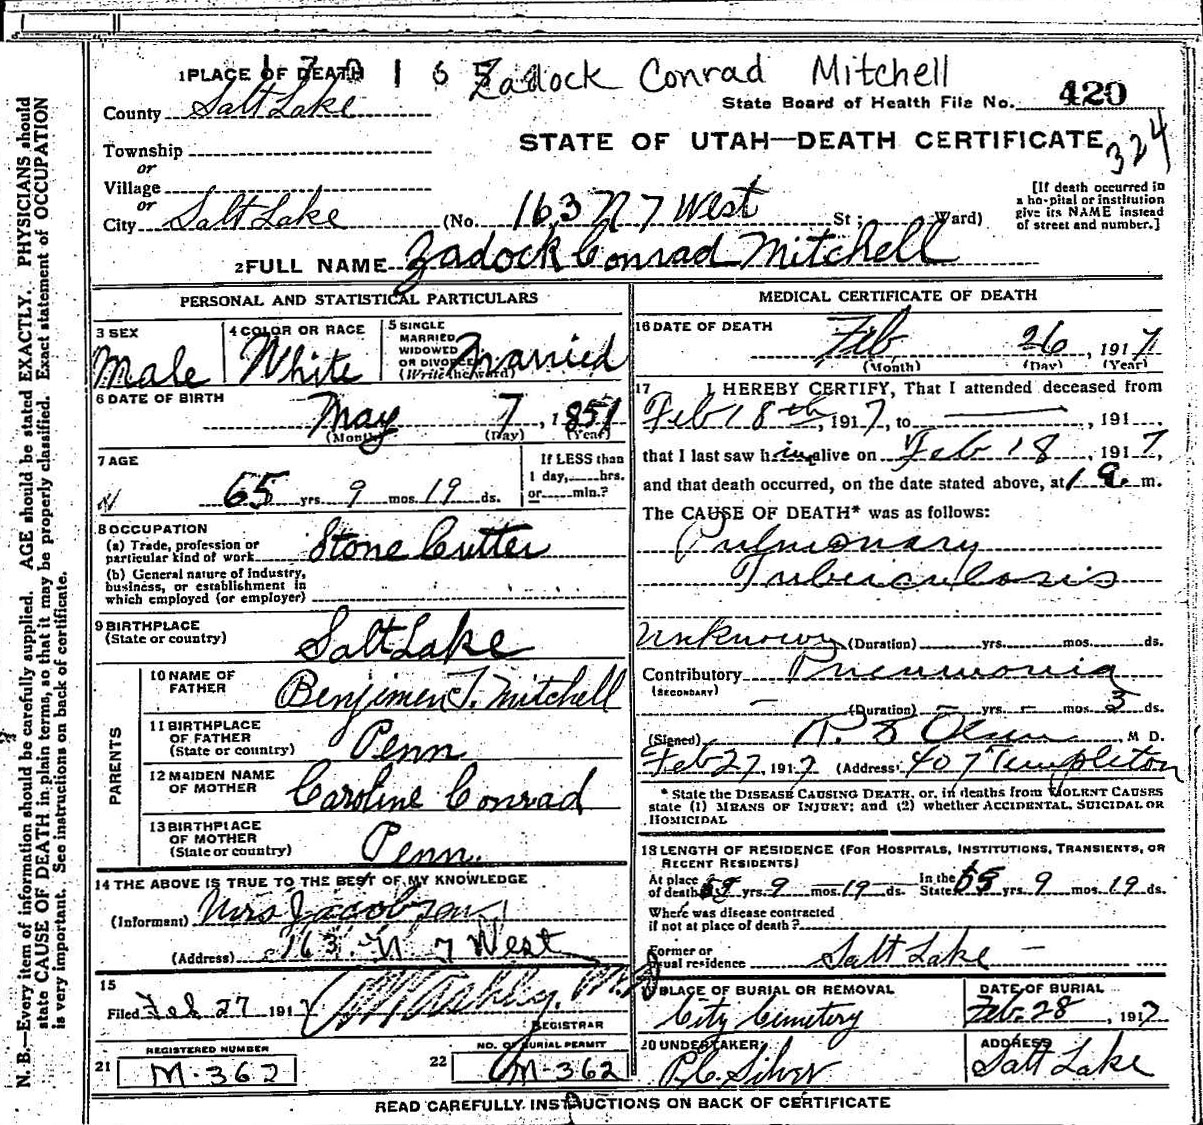 1 PLACE OF DEATH
Zadock Conrad Mitchell
County Salt Lake
State Board of Health File No. 420
Township
STATE OF UTAH—DEATH CERTIFICATE
324
or
Village
or
City Salt Lake (No. 163 N 7 West St; Ward)
[If death occurred in
a hospital or institution
give its NAME instead
of street and number.]
2 FULL NAME Zadock Conrad Mitchell
PERSONAL AND STATISTICAL PARTICULARS
3 SEX
Male
4 COLOR OR RACE
White
5 SINGLE
MARRIED
WIDOWED
OR DIVORCED
(Write the word)
Married
6 DATE OF BIRTH
May 7, 1851
(Month) (Day) (Year)
7 AGE
65 yrs. 9 mos. 19 ds.
If LESS than
1 day, hrs.
or min.?
8 OCCUPATION
(a) Trade, profession or
particular kind of work Stone Cutter
(b) General nature of industry,
business, or establishment in
which employed (or employer)
9 BIRTHPLACE
(State or country) Salt Lake
PARENTS
10 NAME OF
FATHER Benjimen T. Mitchell
11 BIRTHPLACE
OF FATHER
(State or country) Penn
12 MAIDEN NAME
OF MOTHER Caroline Conrad
13 BIRTHPLACE
OF MOTHER
(State or country) Penn.
14 THE ABOVE IS TRUE TO THE BEST OF MY KNOWLEDGE
(Informant) Mrs Jacobson
(Address) 163 N 7 West
15
Filed Feb 27 1917
REGISTRAR
REGISTERED NUMBER
21 M-362
NO. OF BURIAL PERMIT
22 M 362
MEDICAL CERTIFICATE OF DEATH
16 DATE OF DEATH
Feb 26, 1917
(Month) (Day) (Year)
17 I HEREBY CERTIFY, That I attended deceased from
Feb 18th, 1917, to , 191
that I last saw him alive on Feb 18, 1917,
and that death occurred, on the date stated above, at 1 a. m.
The CAUSE OF DEATH* was as follows:
Pulmonary
Tuberculosis
Unknown (Duration) yrs. mos. ds.
Contributory Pneumonia
(SECONDARY)
(Duration) – yrs. – mos. 3 ds.
(Signed) Olsen, M D.
Feb 27, 1917 (Address) 407 Templeton
* State the DISEASE CAUSING DEATH, or, in deaths from VIOLENT CAUSES
state (1) MEANS OF INJURY; and (2) whether ACCIDENTAL, SUICIDAL OR
HOMICIDAL
18 LENGTH OF RESIDENCE (FOR HOSPITALS, INSTITUTIONS, TRANSIENTS, OR
RECENT RESIDENTS)
At place
of death 65 yrs. 9 mos. 19 ds. In the
State 65 yrs. 9 mos. 19 ds.
Where was disease contracted
if not at place of death?
Former or
usual residence Salt Lake –
19 PLACE OF BURIAL OR REMOVAL
City Cemetery
DATE OF BURIAL
Feb. 28, 1917
20 UNDERTAKER
Silver
ADDRESS
Salt Lake
READ CAREFULLY INSTRUCTIONS ON BACK OF CERTIFICATE
N. B.—Every item of information should be carefully supplied. AGE should be stated EXACTLY. PHYSICIANS should
state CAUSE OF DEATH in plain terms, so that it may be properly classified. Exact statement of OCCUPATION
is very important. See instructions on back of certificate.